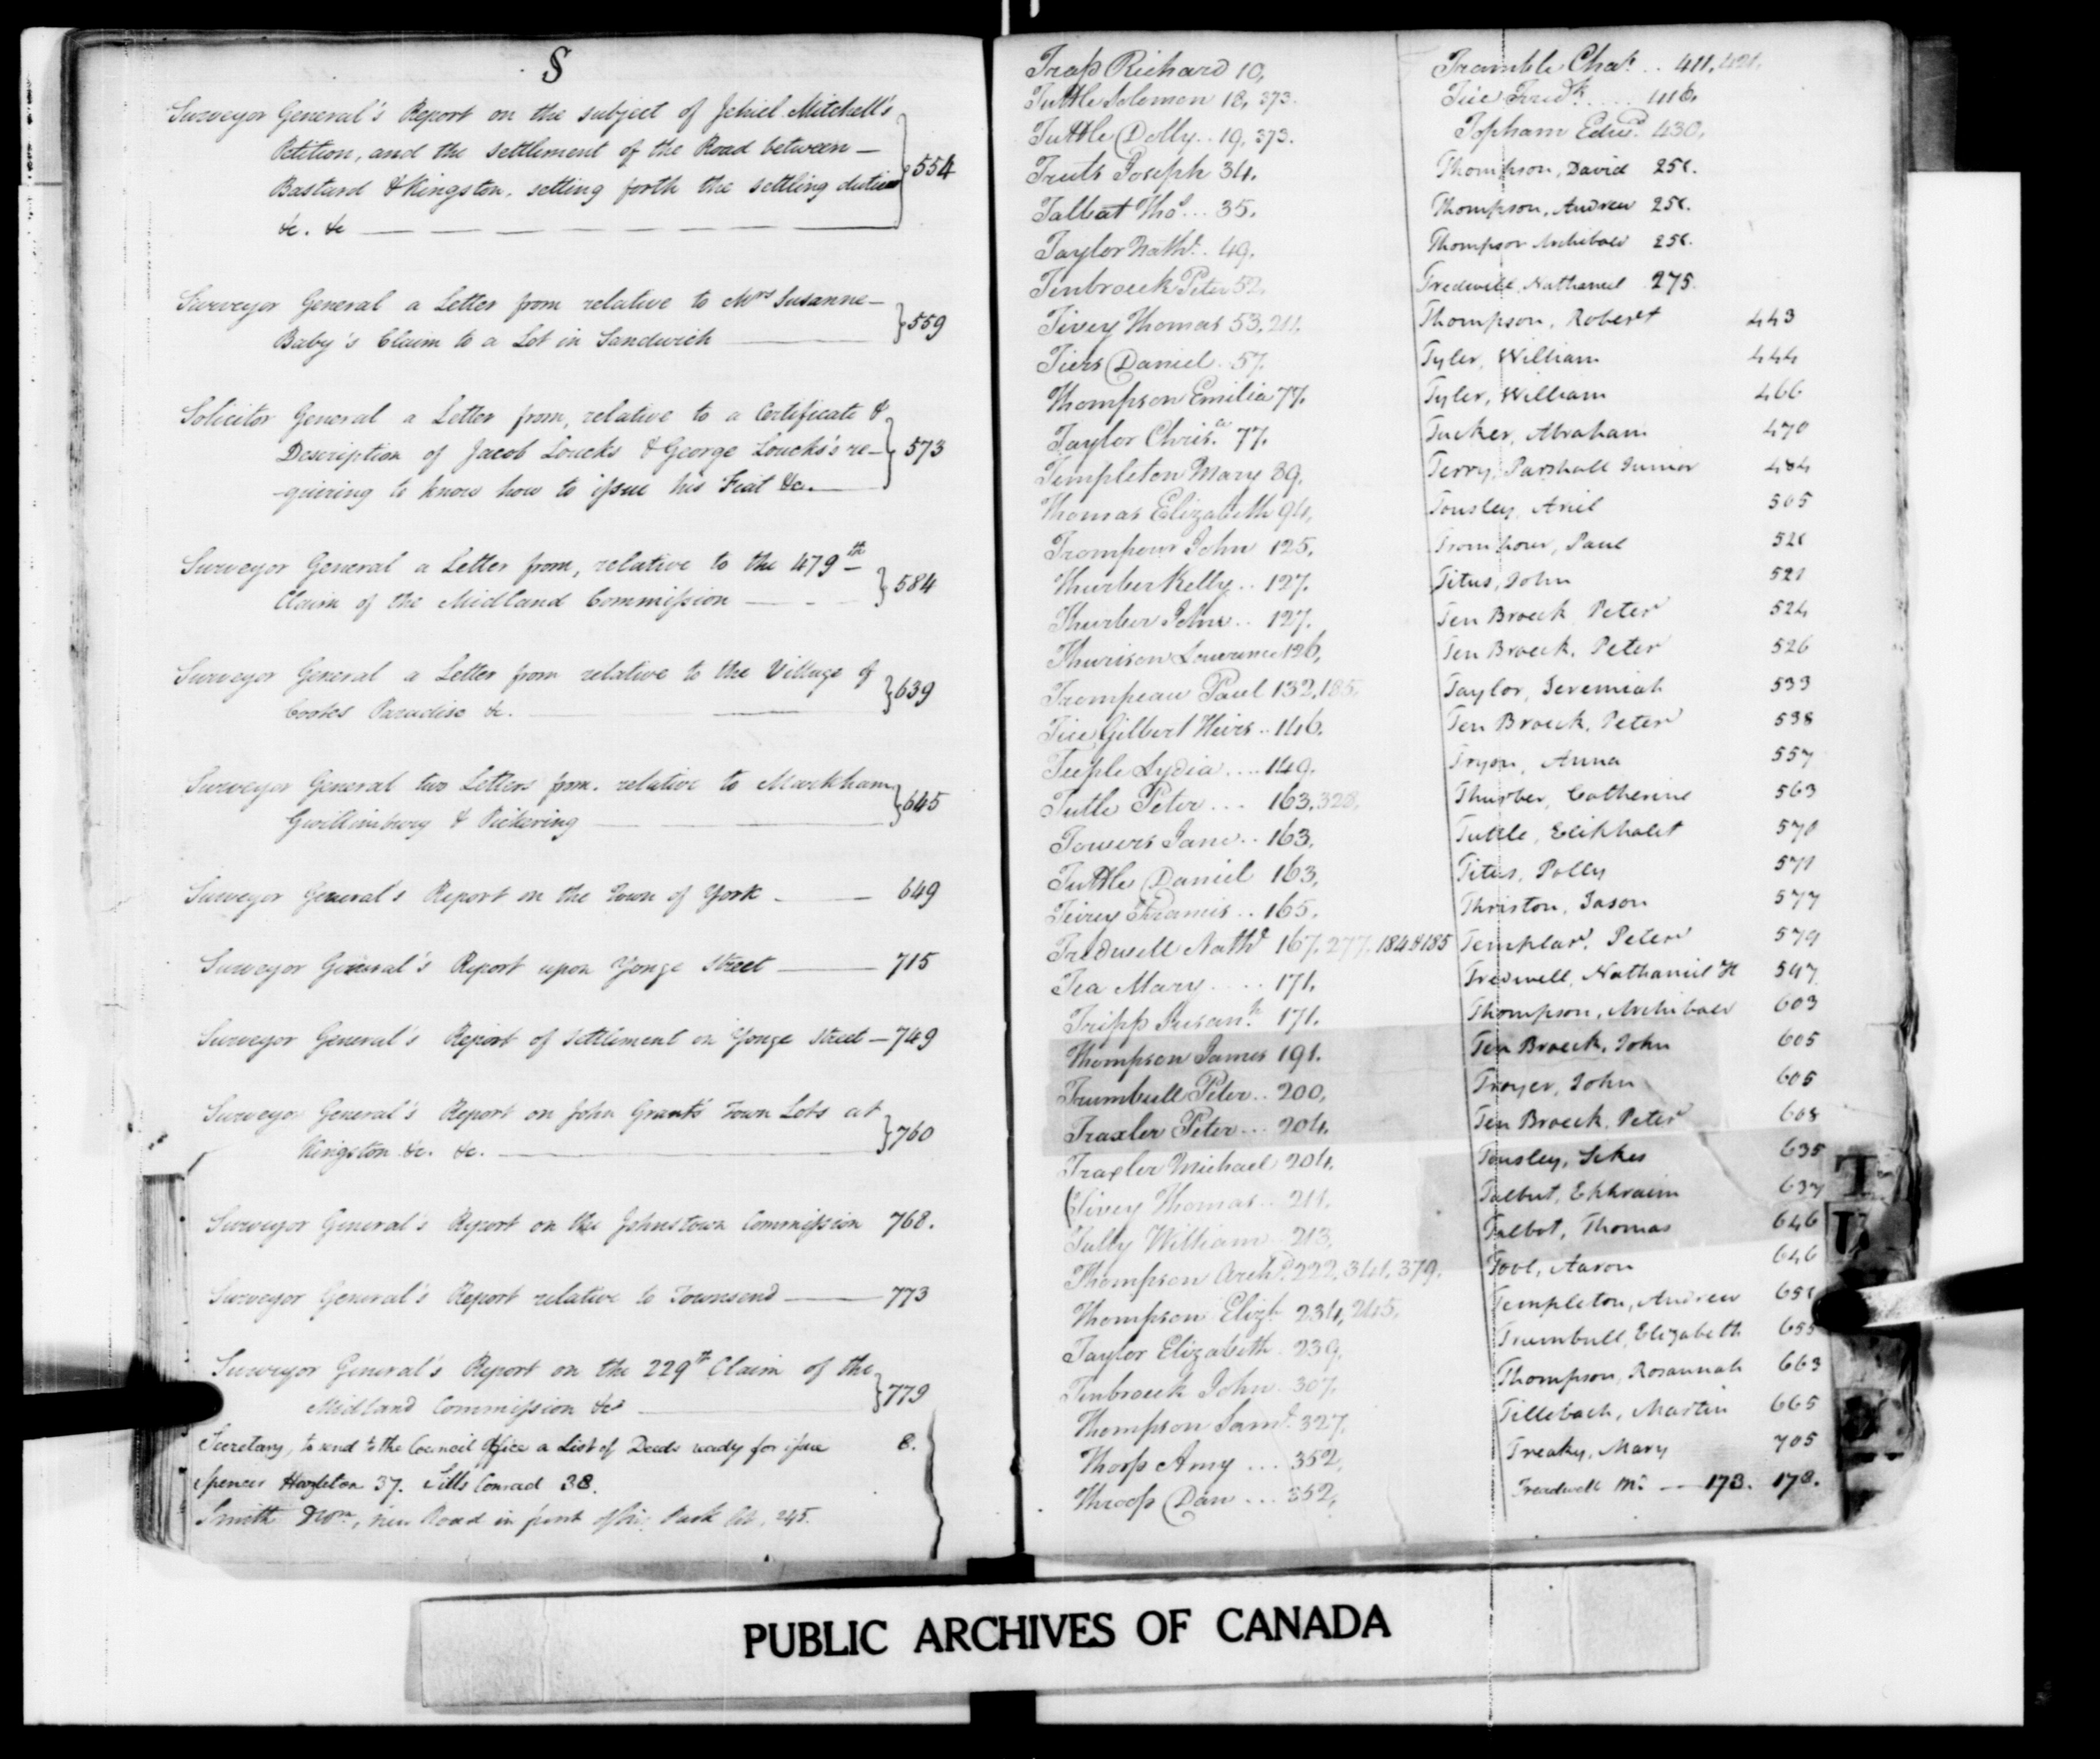 S
Surveyor General's Report on the subject of Jehiel Mitchell's
Petition, and the settlement of the Road between —
Bastard & Kingston, setting forth the settling duties
&c. &c — 554
Surveyor General a Letter from relative to Mrs Susanne —
Baby's Claim to a Lot in Sandwich — 559
Solicitor General a Letter from, relative to a Certificate &
Description of Jacob Loucks & George Loucks's re-
quiring to know how to issue his Fiat &c. — 573
Surveyor General a Letter from, relative to the 479th
Claim of the Midland Commission — 584
Surveyor General a Letter from relative to the Village of
Cootes Paradise &c. — 639
Surveyor General two Letters from, relative to Markham
Gwillimbury & Pickering — 645
Surveyor General's Report on the Town of York — 649
Surveyor General's Report upon Yonge Street — 715
Surveyor General's Report of settlement on Yonge Street — 749
Surveyor General's Report on John Grant's Town Lots at
Kingston &c. &c. — 760
Surveyor General's Report on the Johnstown Commission 768.
Surveyor General's Report relative to Townsend — 773
Surveyor General's Report on the 229th Claim of the
Midland Commission &c — 779
Secretary, to send to the Council Office a List of Deeds ready for issue 8.
Spencer Hazleton 37. Sills Conrad 38.
Smith new Road in front of his Park lot, 245.
Trap Richard 10,
Tuttle Solomon 18, 373.
Tuttle Dolly .. 19, 373.
Truts Joseph 34.
Talbot Thos ... 35.
Taylor Nathl. 49.
Tenbroeck Peter 52.
Tivey Thomas 53, 211.
Tiers Daniel . 57.
Thompson Emilia 77.
Taylor Chris.a 77.
Templeton Mary 89.
Thomas Elizabeth 94,
Trompour John 125.
Thurber Kelly .. 127.
Thurber John .. 127.
Lawrence 126,
Trompeau Paul 132, 185.
Tice Gilbert Heirs .. 146.
Teeple Lydia .... 149.
Tutle Peter ... 163, 328,
Towers Jane .. 163,
Tuttle Daniel 163,
Francis .. 165.
Tredwell Nathl 167, 277. 184 & 185
Tea Mary ..... 171.
Tripp Susanh. 171.
Thompson James 191.
Trumbull Peter .. 200,
Traxler Peter ... 204.
Traxler Michael 204.
(Tivey Thomas .. 211.
Tully William 213.
Thompson Archd. 222, 341, 379.
Thompson Elizh 234, 245.
Taylor Elizabeth . 239,
Tenbroeck John . 307.
Thompson Saml. 327.
Thorp Amy ... 352,
Throop Dan ... 352,
Tramble Chas. .. 411, 421.
Tice Fredk .... 416.
Topham Edwd. 430.
Thompson, David 251.
Thompson, Andrew 251.
Thompson Archibald 251.
Tredwell, Nathaniel 275.
Thompson, Robert 443
Tyler, William 444
Tyler, William 466
Tucker, Abraham 470
Terry, Parshall Junior 484
Tousley, 505
Trompour, Paul 521
Titus, John 521
Ten Broeck Peter 524
Ten Broeck, Peter 526
Taylor, Jeremiah 533
Ten Broeck, Peter 538
Tryon, Anna 557
Thurber, Catherine 563
Tuttle, Eliphalet 570
Titus, Polly 571
Thriston, Jason 577
Templar, Peter 579
Tredwell, Nathaniel H 597
Thompson, Archibald 603
Ten Broeck, John 605
Troyer, John 605
Ten Broeck, Peter 608
Tousley, Sikes 635
Talbut, Ephraim 637
Talbot, Thomas 646
Tool, Aaron 646
Templeton, Andrew 651
Trumbull, Elizabeth 655
Thompson, Rosannah 663
Tillebach, Martin 665
Treaky, Mary 705
Treadwell Mr — 173. 178.
T
U
PUBLIC ARCHIVES OF CANADA